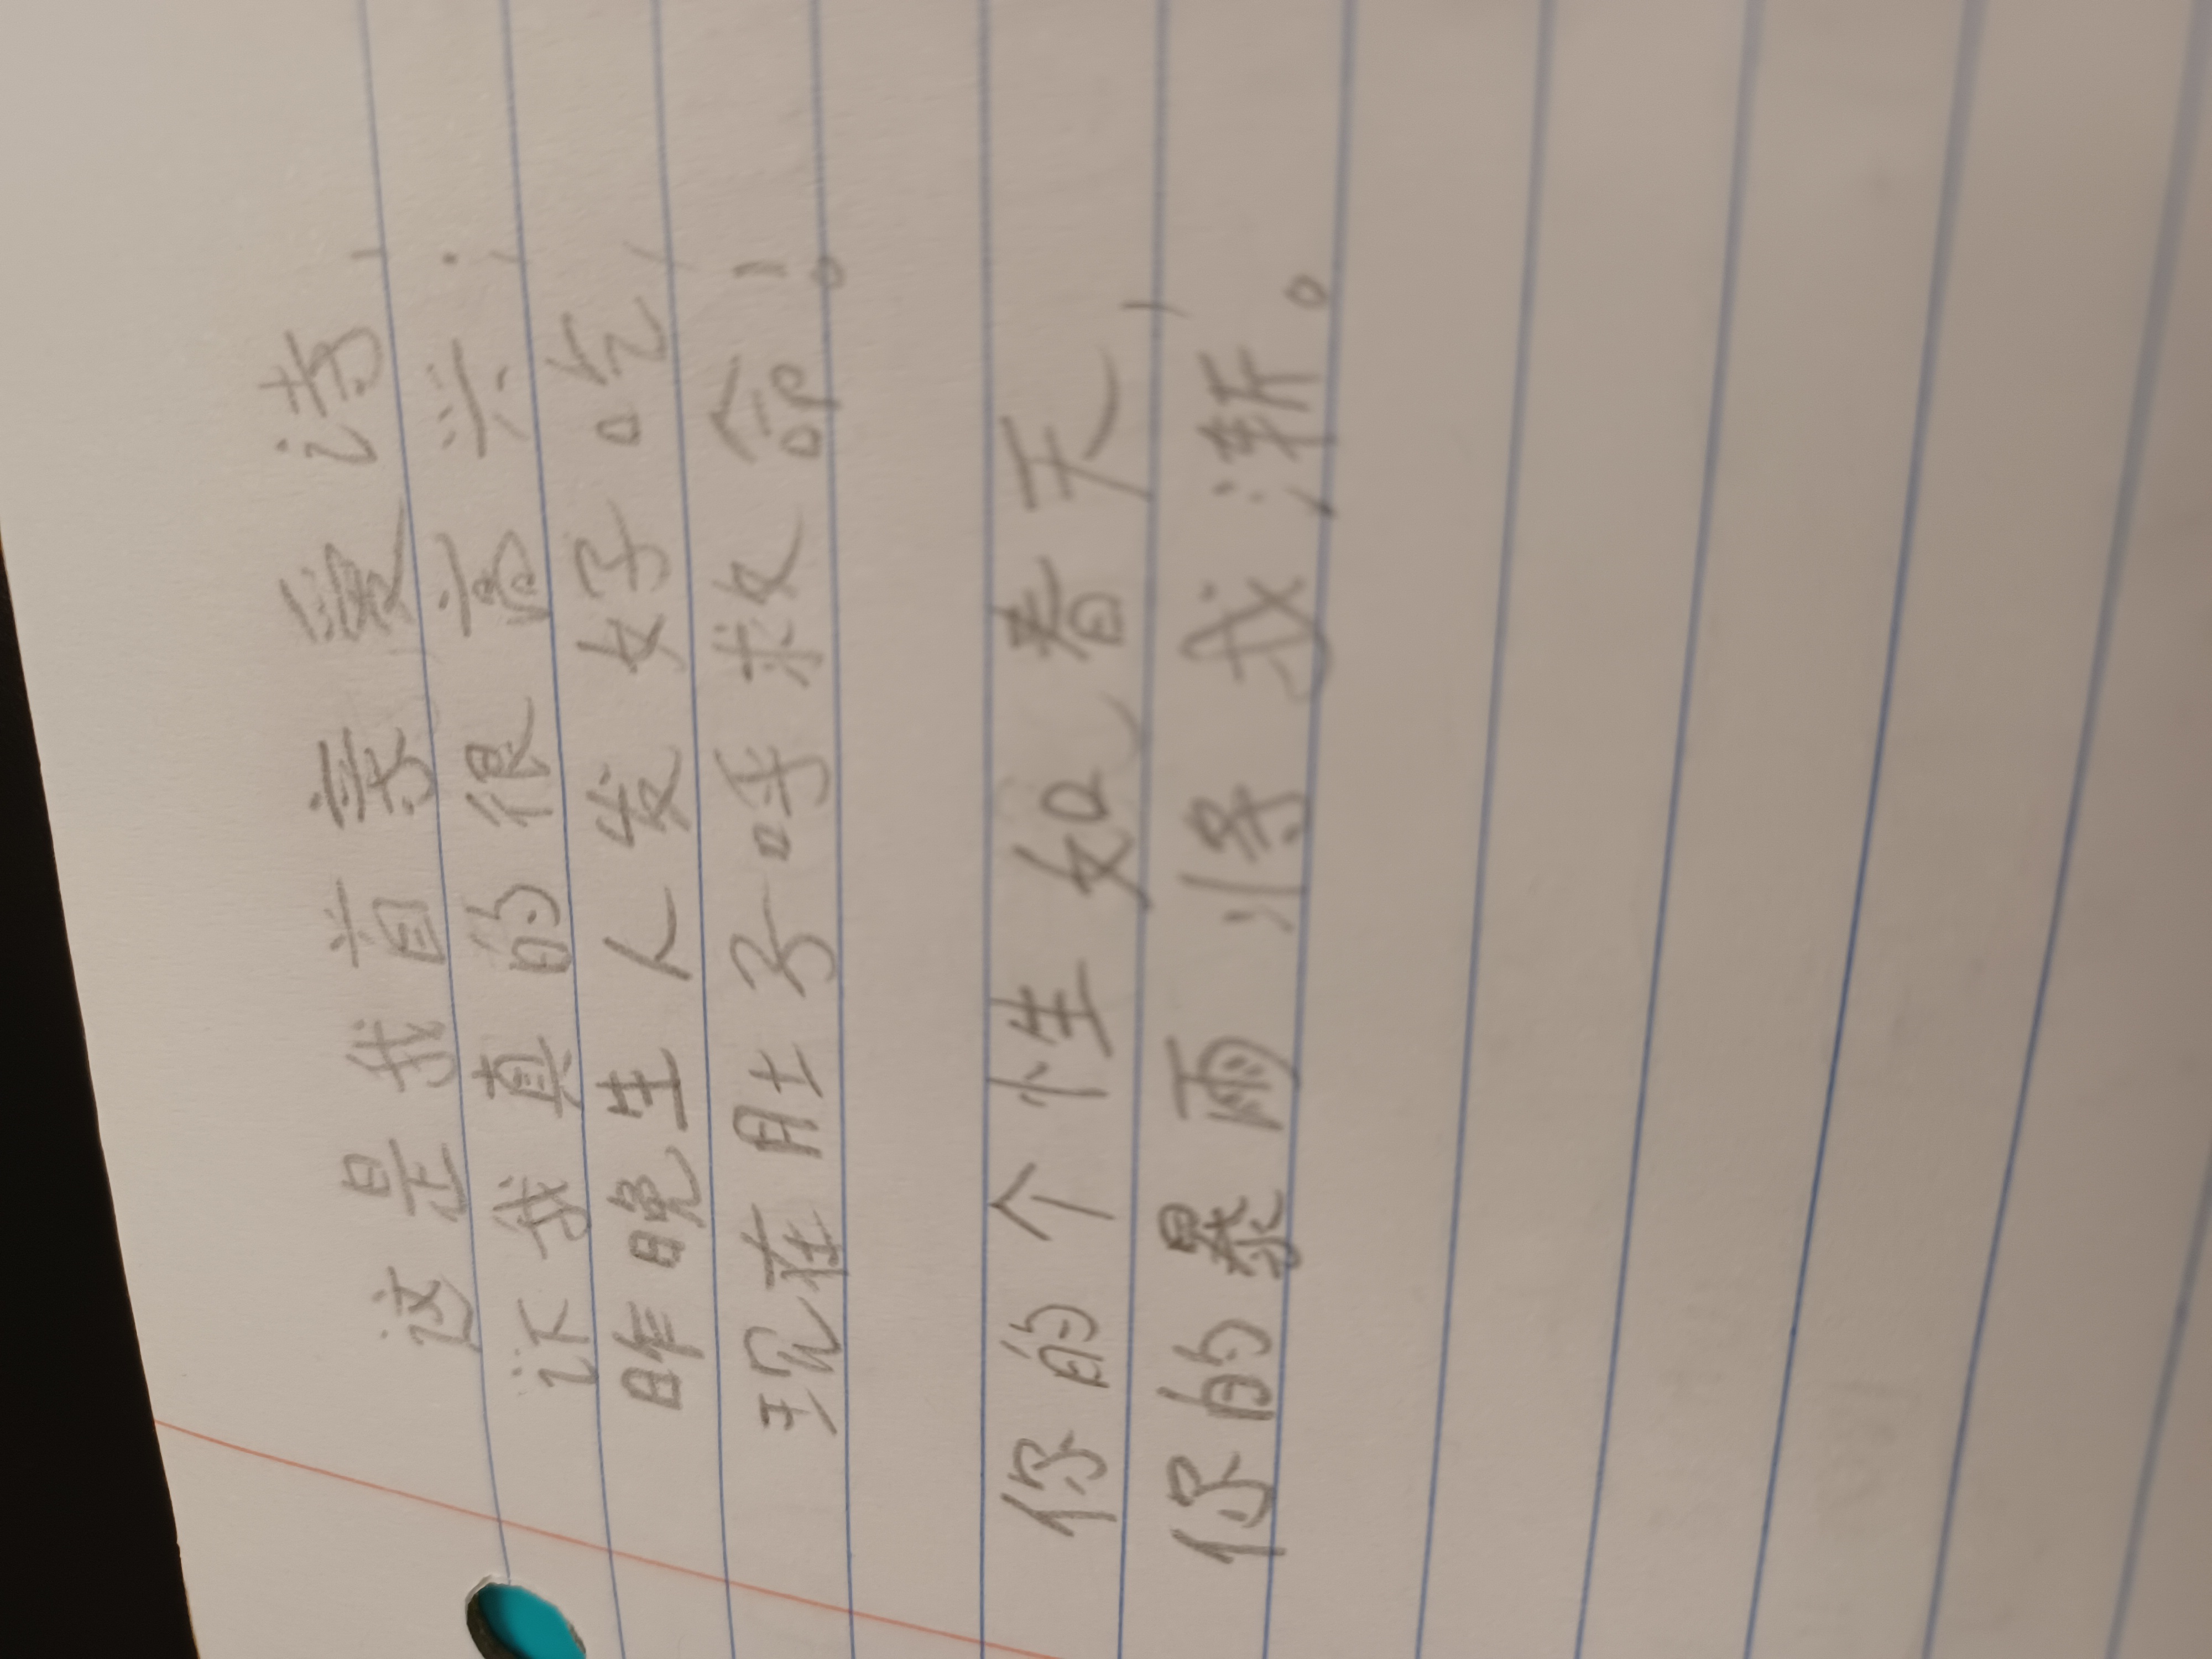 这是我首亲爱诗，
让我真的很高兴；
昨晚生人发好吃，
现在肚子呼救命！
你的个性如春天，
你的暴雨将我渐。